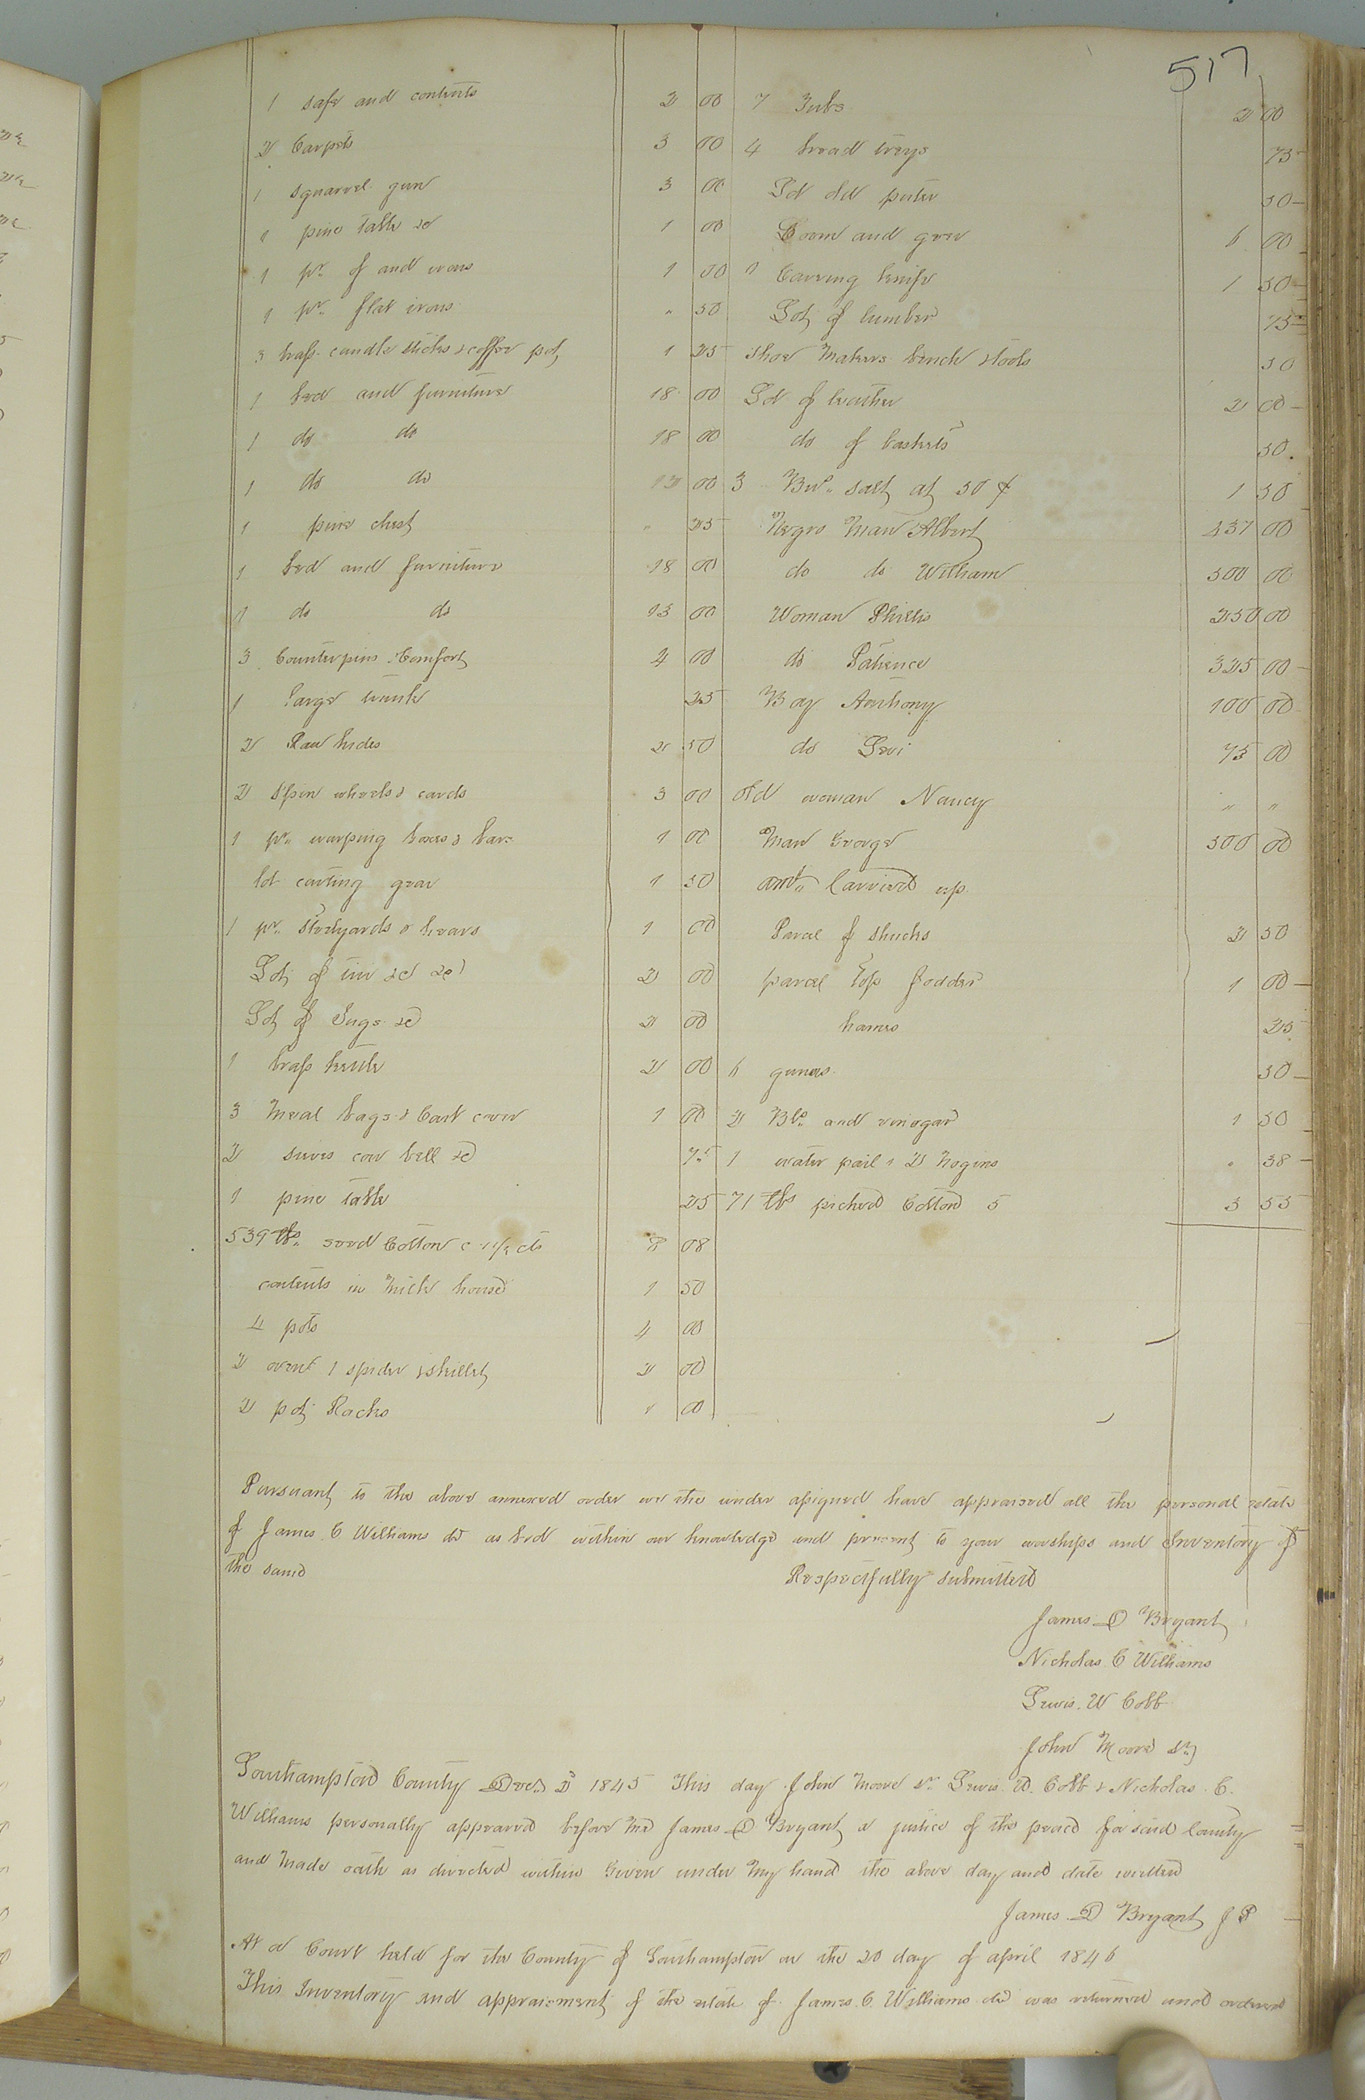 517
1 safe and contents 2 00
2 Carpets 3 00
1 squarrel gun 3 00
1 pine table &c 1 00
1 pr. of and irons 1 00
1 pr. flat irons " 50
3 brass candle sticks & coffee pot 1 25
1 bed and furniture 18 00
1 do do 18 00
1 do do 00
1 pine chest " 25
1 bed and furniture 18 00
1 do do 13 00
3 Counterpins & Comfort 4 00
1 large trunk 25
2 Raw hides 2 50
2 Spin wheels & cards 3 00
1 pr. warping boxes & bars 1 00
lot carting gear 1 50
1 pr. stedyards & 1 00
Lot of tin &c &c 2 00
Lot of Jugs &c 2 00
1 brass kettle 2 00
3 meal bags & Cart cover 1 00
2 sieves cow bell &c 75
1 pine table 25
539 lbs. seed Cotton 1 1/2 cts 8 08
contents in Milk house 1 50
4 pots 4 00
2 ovens 1 spider & skillet 2 00
2 pot Racks 00
7 Tubs 2 00
4 bread treys 75
Lot old puter 50
Loom and gear 6 00
1 Carving knife 1 50
Lot of lumber 75
Shoe Makers bench & tools 50
Lot of leather 2 00
do of baskets 50
3 Bus. salt at 50 ¢ 1 50
Negro Man Albert 437 00
do do William 500 00
Woman Phillis 250 00
do Patience 325 00
Boy Anthony 100 00
do Levi 75 00
Old woman Nancy " "
Man George 500 00
amt. Carried up
Parcel of shucks 2 50
parcel Top fodder 1 00
hames 25
6 50
2 Bls. and vinegar 1 50
1 water pail & 2 nogins " 38
71 lbs picked Cotton 5 3 55
Pursuant to the above annexed order we the under asigned have appraised all the personal estate
of James C Williams dcd as led within our knowledge and present to your worships and Inventory of
the same Respectfully Submitted
James D Bryant
Nicholas C Williams
Lewis W Cobb
John Moore Sr.
Southampton County 1845 This day John Moore Sr. Lewis W. Cobb & Nicholas C.
Williams personally appeared before me James D Bryant a justice of the peace for said County
and made oath as directed within Given under my hand the above day and date written
James D Bryant J P
At a Court held for the County of Southampton on the 20 day of april 1846
This Inventory and appraisment of the estate of James C Williams dcd was returned and ordered